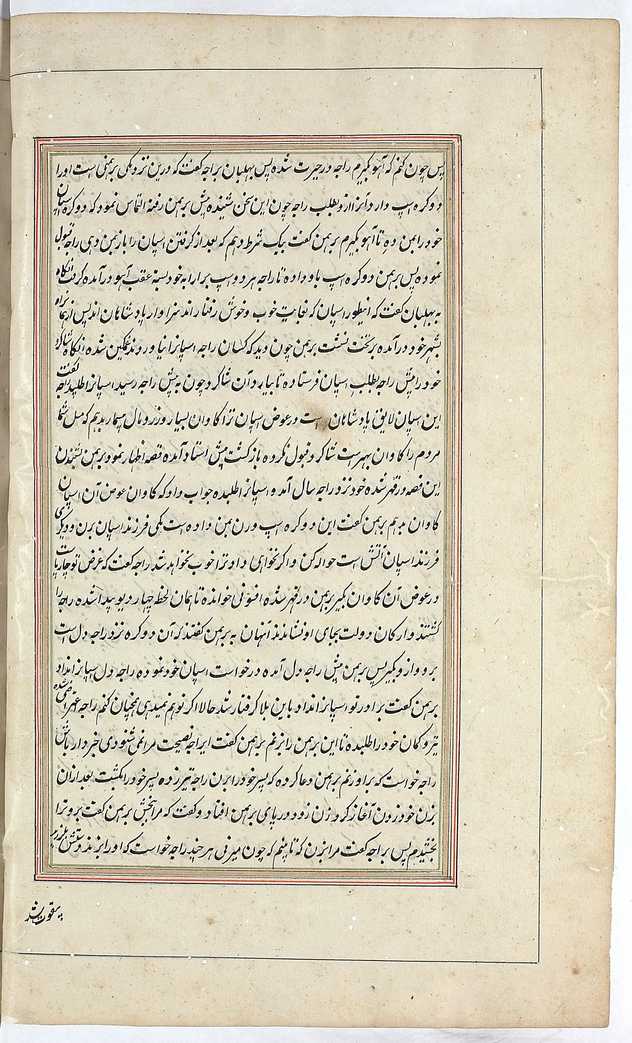 پس چون کنم که آهو بگیرم راجه در حیرت شده پس بهلبان براجه گفت که درین نزدیکی برهمنی است او را
دو کره اسپ دارد آنرا ازو بطلب راجه چون این سخن شنیده پیش برهمن رفته التماس نمود که دو کره اسپان
خود را بمن ده تا آهو بگیرم برهمن گفت بیک شرط دهم که بعد از گرفتن اسپان را باز بمن دهی راجه قبول
نموده پس برهمن دو کره اسپ باو داده تا راجه هر دو اسپ برارابه خود بسته عقب آهو در آمده گرفت آنگاه
به بهلبان گفت که اینطور اسپان که بغایت خوب و خوش رفتار اند سزاوار پادشاهان اند پس از همانراه
بشهر خود در آمده بر تخت نشست برهمن چون دید که کسان راجه اسپانرا نیاوردند غمگین شده آنگاه شاگرد
خود را پیش راجه بطلب اسپان فرستاده تا بیارد آن شاگرد چون به پیش راجه رسید اسپانرا طلبید راجه گفت
این اسپان لایق پادشاهان است در عوض اسپان ترا گاوان بسیار و زر و مال بیشمار بدهم که مثل شما
مردم را گاوان بهتر است شاگرد قبول نکرده باز گشت پیش استاد آمده قصه اظهار نمود برهمن بشنیدن
این قصه در قهر شده خود نزد راجه سال آمد و اسپانرا طلبیده جواب داد که گاوان عوض آن اسپان
گاوان بدهم برهمن گفت این دو کره اسپ ورن بمن داده است یکی فرزند اسپان برن و دیگری
فرزند اسپان آتش است حواله کن و اگر نخواهی داد ترا خوب نخواهد شد راجه گفت که غرض تو چارپاست
در عوض آن گاوان بگیر برهمن در قهر شده افسونی خوانده تا همان لحظه چهار دیو پیدا شده راجه را
کشتند و ارکان دولت بجای او نشاندند آنهان به برهمن گفتند که آن دو کره نزد راجه دل است
برو و ازو بگیر پس برهمن پیش راجه دل آمده درخواست اسپان خود نموده راجه دل اسپانرا نداد
برهمن گفت برادر تو اسپانرا نداد باین بلا گرفتار شد حالا اگر تو هم نمیدهی همچنان کنم راجه غصه شده
تیر و کمان خود را طلبیده تا این برهمن را بزنم برهمن گفت ای راجه نصیحت مرا نمی شنوی خبردار باش
راجه خواست که براو زنم برهمن دعا کرده که پسر خود را بزن راجه تیر زده پسر خود را بکشت بعد ازان
بزن خود زدن آغاز کرد زن زود در پای برهمن افتاد و گفت که مرا ببخش برهمن گفت برو ترا
بخشیدم پس براجه گفت مرا بزن که تا بینم که چون میزنی هر چند راجه خواست که او را بزند دستش بلرزید